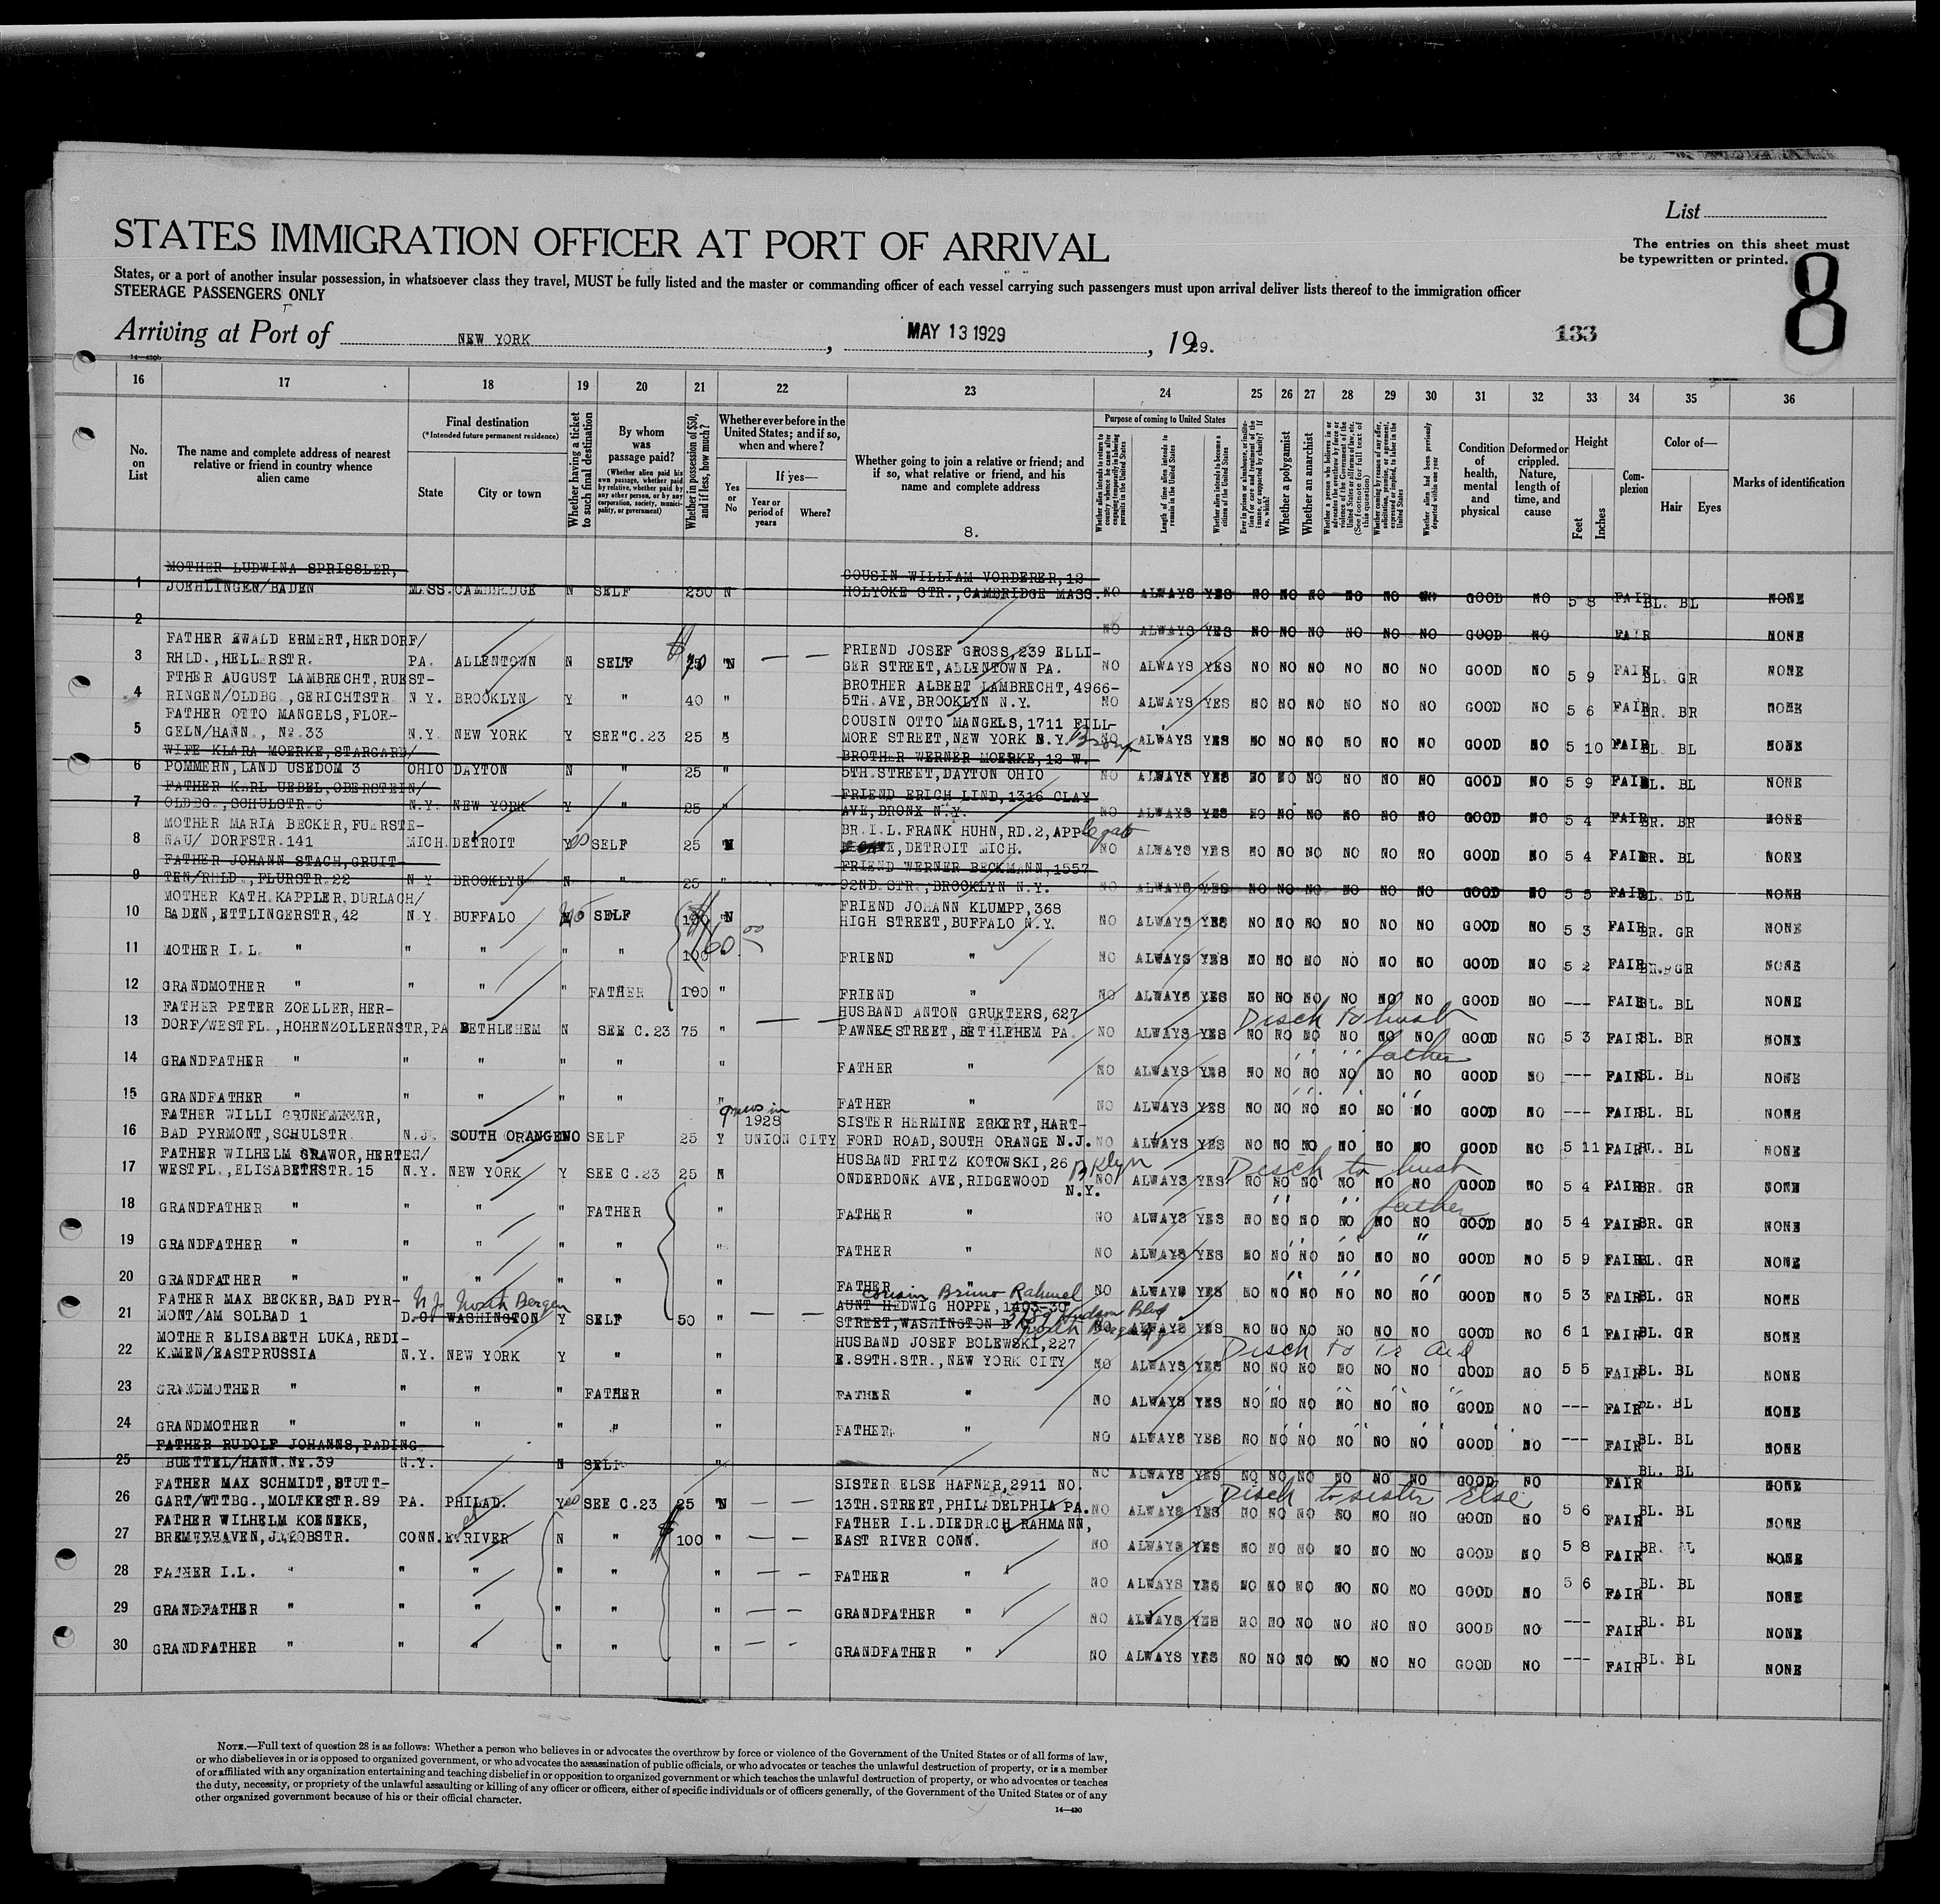 List
STATES IMMIGRATION OFFICER AT PORT OF ARRIVAL
The entries on this sheet must
be typewritten or printed.
8
States, or a port of another insular possession, in whatsoever class they travel, MUST be fully listed and the master or commanding officer of each vessel carrying such passengers must upon arrival deliver lists thereof to the immigration officer
STEERAGE PASSENGERS ONLY
Arriving at Port of NEW YORK, MAY 13 1929, 1929.
133
14—430b
16 17 18 19 20 21 22 23 24 25 26 27 28 29 30 31 32 33 34 35 36
No. on List
The name and complete address of nearest relative or friend in country whence alien came
Final destination
(*Intended future permanent residence)
State
City or town
Whether having a ticket to such final destination
By whom was passage paid?
(Whether alien paid his own passage, whether paid by relative, whether paid by any other person, or by any corporation, society, municipality, or government)
Whether in possession of $50, and if less, how much?
Whether ever before in the United States; and if so, when and where?
Yes or No
If yes—
Year or period of years
Where?
Whether going to join a relative or friend; and if so, what relative or friend, and his name and complete address
8.
Purpose of coming to United States
Whether alien intends to return to country whence he came after engaging temporarily in laboring pursuits in the United States
Length of time alien intends to remain in the United States
Whether alien intends to become a citizen of the United States
Whether a polygamist
Whether an anarchist
Whether alien had been previously deported within one year
Condition of health, mental and physical
Deformed or crippled. Nature, length of time, and cause
Height
Feet
Inches
Complexion
Color of—
Hair
Eyes
Marks of identification
MOTHER LUDWINA SPRISSLER, COUSIN WILLIAM VORDERER, 12
1 JOEHLINGEN/BADEN MASS. CAMBRIDGE N SELF 250 N HOLYOKE STR., CAMBRIDGE MASS. NO ALWAYS YES NO NO NO NO NO NO GOOD NO 5 8 FAIR BL. BL NONE
2 NO ALWAYS YES NO NO NO NO NO NO GOOD NO FAIR NONE
FATHER EWALD ERMERT, HERDORF/ FRIEND JOSEF GROSS, 239 ELLI-
3 RHLD., HELLERSTR. PA. ALLENTOWN N SELF N — — GER STREET, ALLENTOWN PA. NO ALWAYS YES NO NO NO NO NO NO GOOD NO 5 9 FAIR BL. GR NONE
FTHER AUGUST LAMBRECHT, RUEST- BROTHER ALBERT LAMBRECHT, 4966-
4 RINGEN/OLDBG., GERICHTSTR N Y. BROOKLYN Y " 40 " 5TH.AVE, BROOKLYN N.Y. NO ALWAYS YES NO NO NO NO NO NO GOOD NO 5 6 FAIR BR. BR NONE
FATHER OTTO MANGELS, FLOE- COUSIN OTTO MANGELS, 1711 FILL-
5 GELN/HANN., No.33 N.Y. NEW YORK Y SEE"C.23 25 " MORE STREET, NEW YORK N.Y. Bronx NO ALWAYS YES NO NO NO NO NO NO GOOD NO 5 10 FAIR BL. BL NONE
WIFE KLARA MOERKE, STARGARD/ BROTHER WERNER MOERKE, 12 W.
6 POMMERN, LAND USEDOM 3 OHIO DAYTON N " 25 " 5TH.STREET, DAYTON OHIO NO ALWAYS YES NO NO NO NO NO NO GOOD NO 5 9 FAIR BL. BL NONE
FATHER KARL UEBEL, OBERSTEIN/ FRIEND ERICH LIND, 1316 CLAY
7 OLDBG., SCHULSTR.6 N.Y. NEW YORK Y " 25 " AVE, BRONX N.Y. NO ALWAYS YES NO NO NO NO NO NO GOOD NO 5 4 FAIR BR. BR NONE
MOTHER MARIA BECKER, FUERSTE- BR.I.L. FRANK HUHN, RD.2, APPlegate
8 NAU/ DORFSTR.141 MICH. DETROIT Yes SELF 25 N , DETROIT MICH. NO ALWAYS YES NO NO NO NO NO NO GOOD NO 5 4 FAIR BR. BL NONE
FATHER JOHANN STACH, GRUIT- FRIEND WERNER BECKMANN, 1557
9 TEN/RHLD., FLURSTR.22 N.Y. BROOKLYN N " 25 " 92ND.STR., BROOKLYN N.Y. NO ALWAYS YES NO NO NO NO NO NO GOOD NO 5 5 FAIR BL. BL NONE
MOTHER KATH.KAPPLER, DURLACH/ FRIEND JOHANN KLUMPP, 368
10 BADEN, ETTLINGERSTR, 42 N.Y. BUFFALO No SELF 100 N HIGH STREET, BUFFALO N.Y. NO ALWAYS YES NO NO NO NO NO NO GOOD NO 5 3 FAIR BR. GR NONE
$160 00
11 MOTHER I.L. " " " " " 100 " FRIEND " NO ALWAYS YES NO NO NO NO NO NO GOOD NO 5 2 FAIR BR. GR NONE
12 GRANDMOTHER " " " FATHER 100 " FRIEND " NO ALWAYS YES NO NO NO NO NO NO GOOD NO --- FAIR BL. BL NONE
FATHER PETER ZOELLER, HER- HUSBAND ANTON GRUETERS, 627 Disch to husb
13 DORF/WESTFL., HOHENZOLLERNSTR, PA BETHLEHEM N SEE C.23 75 " — — PAWNEE STREET, BETHLEHEM PA. NO ALWAYS YES NO NO NO NO NO NO GOOD NO 5 3 FAIR BL. BR NONE
" " father
14 GRANDFATHER " " " " " " FATHER " NO ALWAYS YES NO NO NO NO NO NO GOOD NO --- FAIR BL. BL NONE
15 GRANDFATHER " " " " " " FATHER " NO ALWAYS YES NO NO NO NO NO NO GOOD NO --- FAIR BL. BL NONE
FATHER WILLI GRUNEMEYER, 1928 SISTER HERMINE ECKERT, HART-
16 BAD PYRMONT, SCHULSTR. N.J. SOUTH ORANGE NO SELF 25 Y UNION CITY FORD ROAD, SOUTH ORANGE N.J. NO ALWAYS YES NO NO NO NO NO NO GOOD NO 5 11 FAIR BL. BL NONE
FATHER WILHELM GRAWOR, HERTEN/ HUSBAND FRITZ KOTOWSKI, 26 Bklyn Disch to husb
17 WESTFL., ELISABETHSTR.15 N.Y. NEW YORK Y SEE C.23 25 N ONDERDONK AVE, RIDGEWOOD N.Y. NO ALWAYS YES NO NO NO NO NO NO GOOD NO 5 4 FAIR BR. GR NONE
" " father
18 GRANDFATHER " " " " FATHER " FATHER " NO ALWAYS YES NO NO NO NO NO NO GOOD NO 5 4 FAIR BR. GR NONE
19 GRANDFATHER " " " " " " FATHER " NO ALWAYS YES NO NO NO NO NO NO GOOD NO 5 9 FAIR BL. GR NONE
20 GRANDFATHER " " " " " " FATHER " NO ALWAYS YES NO NO NO NO NO NO GOOD NO 5 3 FAIR BL. GR NONE
N.J. North Bergen cousin Bruno Rahmel
FATHER MAX BECKER, BAD PYR- AUNT HEDWIG HOPPE, 1403-30 Hudson Blvd
21 MONT/AM SOLBAD 1 D.C. WASHINGTON Y SELF 50 " — — STREET, WASHINGTON D North Bergen NO ALWAYS YES NO NO NO NO NO NO GOOD NO 6 1 FAIR BL. GR NONE
MOTHER ELISABETH LUKA, REDI- HUSBAND JOSEF BOLEWSKI, 227 Disch to Tr aid
22 KAMEN/EASTPRUSSIA N.Y. NEW YORK Y " " E.89TH.STR., NEW YORK CITY NO ALWAYS YES NO NO NO NO NO NO GOOD NO 5 5 FAIR BL. BL NONE
23 GRANDMOTHER " " " " FATHER " FATHER " NO ALWAYS YES NO NO NO NO NO NO GOOD NO --- FAIR BL. BL NONE
24 GRANDMOTHER " " " " " " FATHER " NO ALWAYS YES NO NO NO NO NO NO GOOD NO --- FAIR BL. BL NONE
FATHER RUDOLF JOHANNS, PADING-
25 BUETTEL/HANN.No.39 N.Y. N SELF " NO ALWAYS YES NO NO NO NO NO NO GOOD NO FAIR BL. BL NONE
FATHER MAX SCHMIDT, STUTT- SISTER ELSE HAFNER, 2911 NO. Disch to sister Else
26 GART/WTTBG., MOLTKESTR.89 PA. PHILAD. Yes SEE C.23 25 N — — 13TH.STREET, PHILADELPHIA PA. NO ALWAYS YES NO NO NO NO NO NO GOOD NO 5 6 FAIR BL. BL NONE
FATHER WILHELM KOENEKE, FATHER I.L.DIEDRICH RAHMANN,
27 BREMERHAVEN, JACOBSTR. CONN. E.RIVER N " $ 100 " — — EAST RIVER CONN. NO ALWAYS YES NO NO NO NO NO NO GOOD NO 5 8 FAIR BR. BL NONE
28 FATHER I.L. " " " " " " — — FATHER " NO ALWAYS YES NO NO NO NO NO NO GOOD NO 5 6 FAIR BL. BL NONE
29 GRANDFATHER " " " " " " — — GRANDFATHER " NO ALWAYS YES NO NO NO NO NO NO GOOD NO --- FAIR BL. BL NONE
30 GRANDFATHER " " " " " " — - GRANDFATHER " NO ALWAYS YES NO NO NO NO NO NO GOOD NO --- FAIR BL. BL NONE
NOTE.—Full text of question 28 is as follows: Whether a person who believes in or advocates the overthrow by force or violence of the Government of the United States or of all forms of law,
or who disbelieves in or is opposed to organized government, or who advocates the assassination of public officials, or who advocates or teaches the unlawful destruction of property, or is a member
of or affiliated with any organization entertaining and teaching disbelief in or opposition to organized government or which teaches the unlawful destruction of property, or who advocates or teaches
the duty, necessity, or propriety of the unlawful assaulting or killing of any officer or officers, either of specific individuals or of officers generally, of the Government of the United States or of any
other organized government because of his or their official character.
14—430